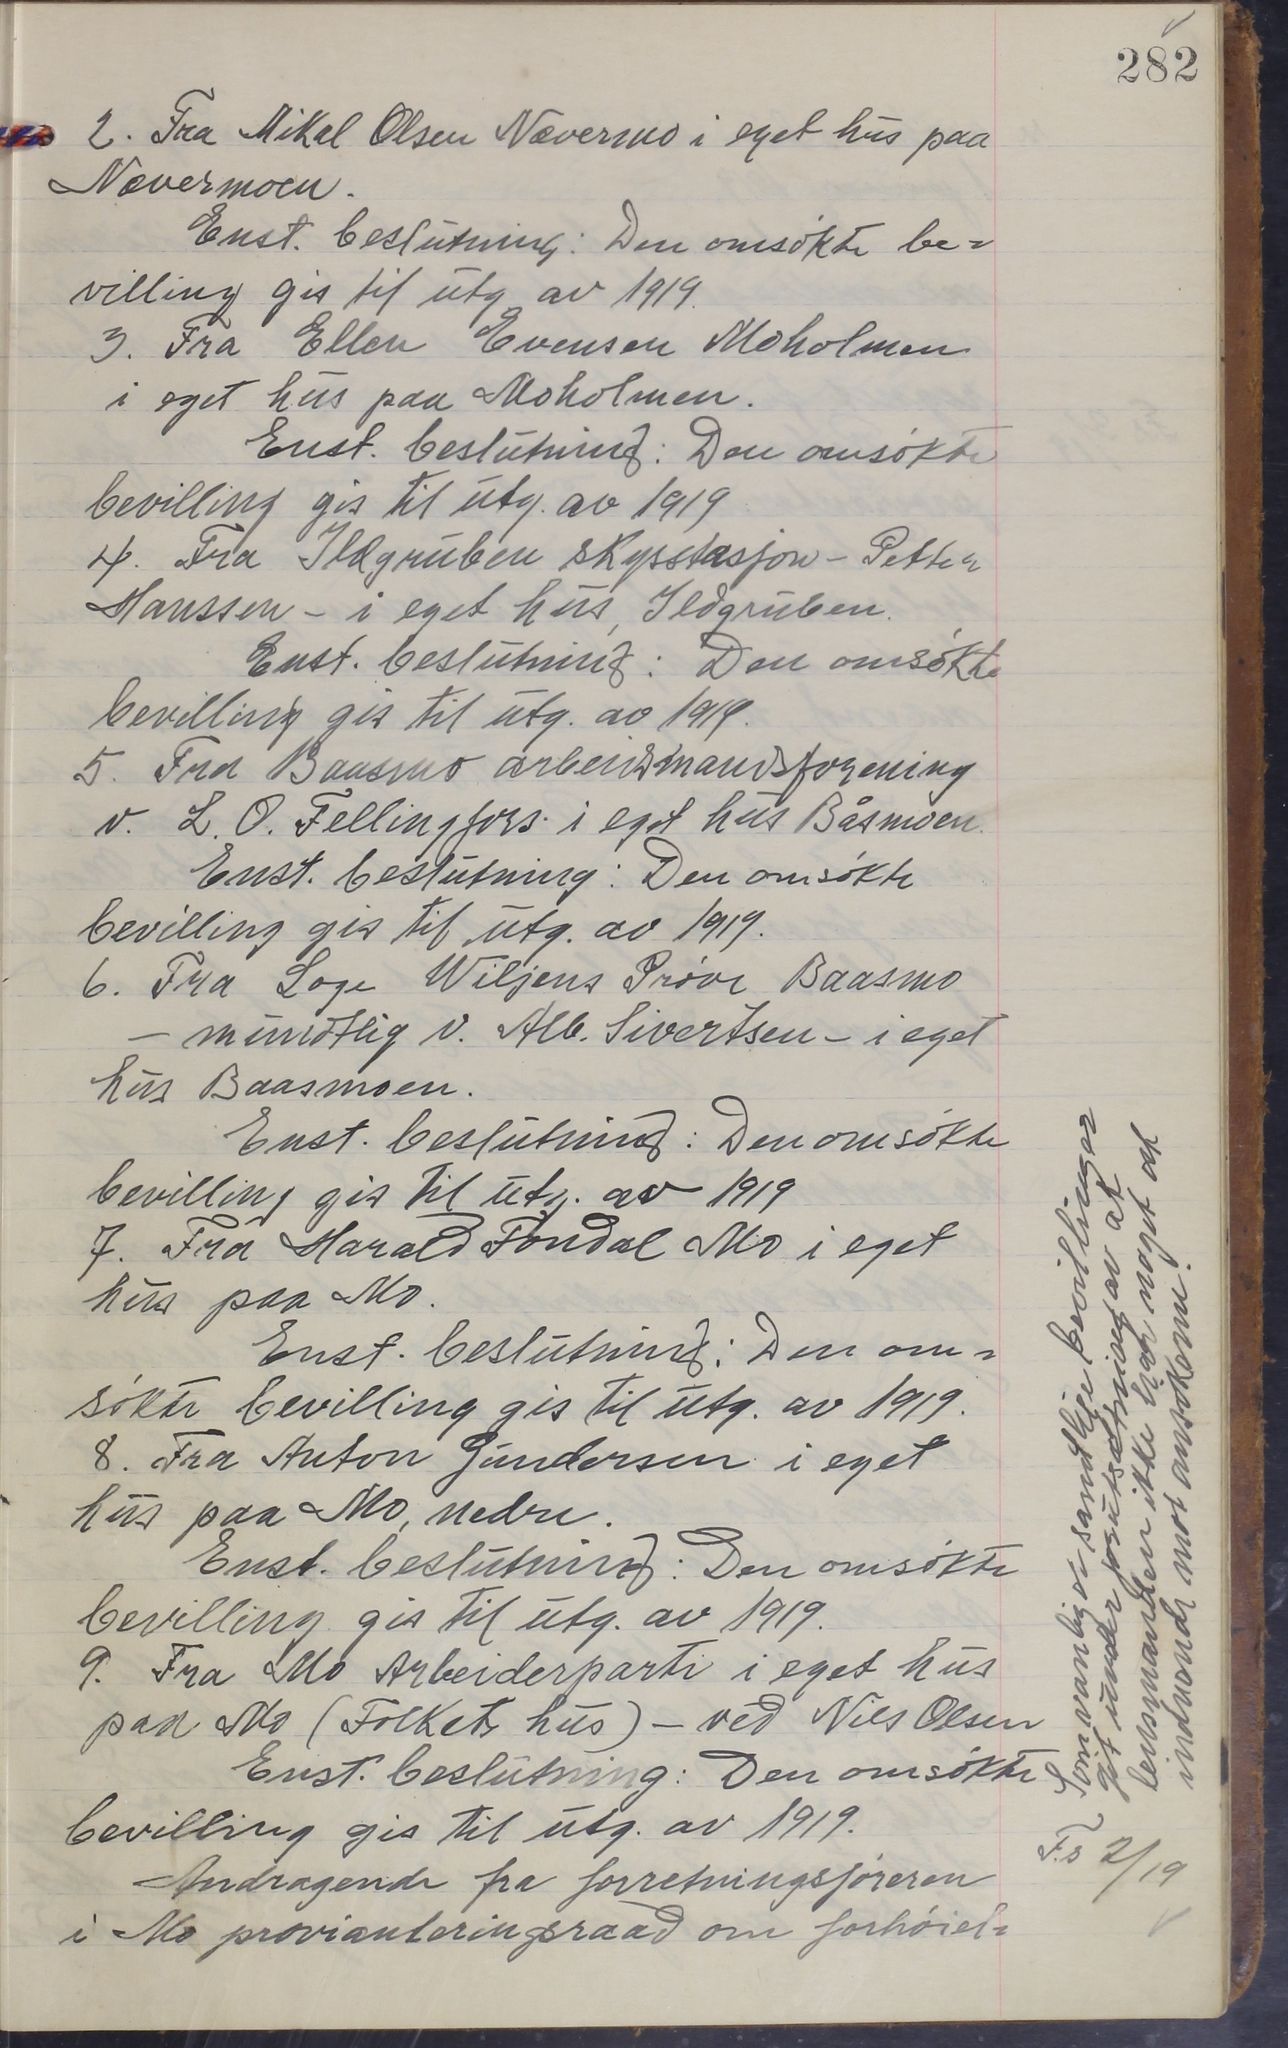 282
2. Fra Mikal Olsen Nævermo i eget hus paa
Nævermoen.
Enst. beslutning: Den omsökte be-
villing gis til utg av 1919.
3. Fra Ellen Evensen Moholmen
i eget hus paa Moholmen.
Enst. beslutning: Den omsökte
bevilling gis til utg. av 1919
4. Fra Ildgruben skysstasjon - Petter
Hanssen - i eget hus, Ildgruben.
Enst. beslutning: Den omsökte
bevilling gis til utg. av 1919.
5. Fra Baasmo arbeidsmandsforening
v. L. O. Fellingfors i eget hus Båsmoen.
Enst. beslutning: Den omsökte
bevilling gis til utg. av 1919.
6. Fra Loge Wiljens Pröve Baasmo
- mundtlig v. Alb. Sivertsen - i eget
hus Baasmoen.
Enst. beslutning: Den omsökte
bevilling gis til utg. av 1919
7. Fra Harald Fondal Mo i eget
hus paa Mo.
Enst. beslutning: Den om-
sökte bevilling gis til utg. av 1919.
8. Fra Anton Gundersen i eget
hus paa Mo, nedre.
Enst. beslutning: Den omsökte
bevilling gis til utg. av 1919.
9. Fra Mo Arbeiderparti i eget hus
paa Mo (Folkets hus) - ved Nils Olsen
Enst. beslutning: Den omsökte
bevilling gis til utg. av 1919.
Andragende fra forretningsföreren
i Mo provianteringsraad om forhöiel-
Som vanlig er samtlige bevillinger
git under forutsætning av at
lensmanden ikke har noget at
indvende mot ansökerne.
F.s 2/19